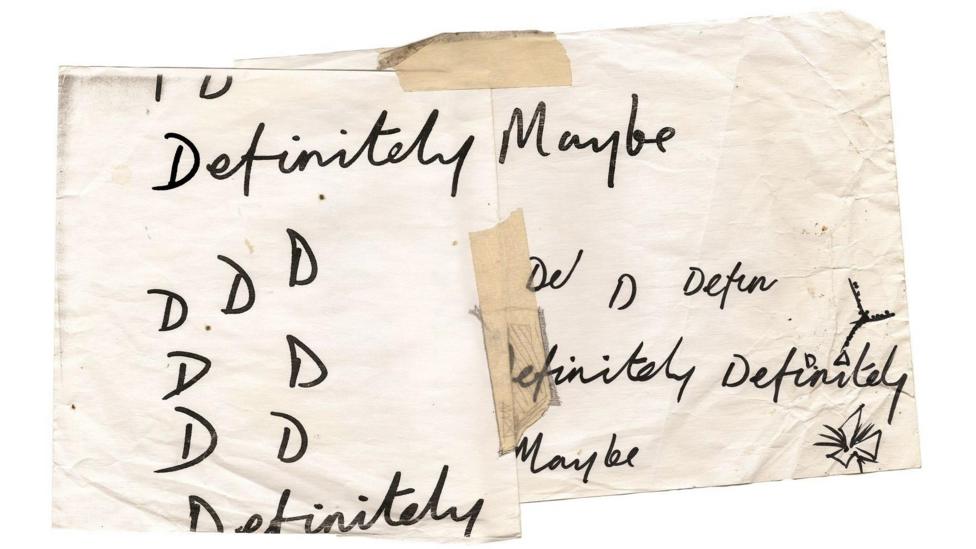 D
Definitely Maybe
D D D
D D
D D
Definitely
De D Defin
efinitely Definitely
Maybe